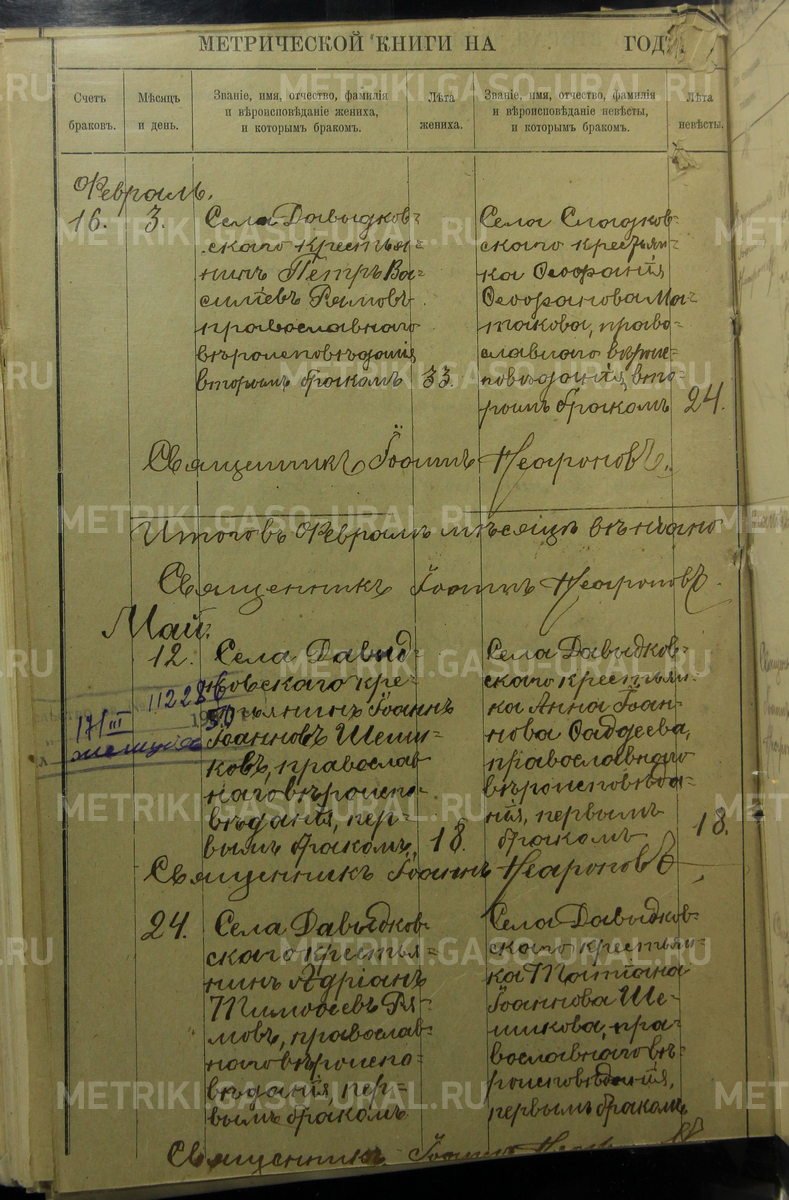 МЕТРИЧЕСКОЙ КНИГИ НА ГОДЪ
Счетъ
браковъ.
Мѣсяцъ
и день.
Званіе, имя, отчество, фамилія
и вѣроисповѣданіе жениха,
и которымъ бракомъ.
Лѣта
жениха.
Званіе, имя, отчество, фамилія
и вѣроисповѣданіе невѣсты,
и которымъ бракомъ.
Лѣта
невѣсты.
Февраль.
16. 3.
Села Давыдков-
скаго крестья-
нинъ Петръ Ва-
сильевъ Рямовъ
православнаго
вѣроисповѣданія,
вторымъ бракомъ
33.
Села Сладков-
скаго крестьян-
ка
православнаго вѣроис-
повѣданія, вто-
рымъ бракомъ
24.
Священникъ Іоаннъ Неароновъ.
Итого въ Февралѣ мѣсяцѣ вѣнчано
Священникъ Іоаннъ Неароновъ.
Май.
12.
Села Давыд-
ковскаго кре-
стьянинъ Іоаннъ
Іоанновъ Шеши-
ковъ, православ-
наго вѣроиспо-
вѣданія, пер-
вымъ бракомъ,
18.
Села Давыдков-
скаго крестьян-
ка Анна Іоан-
нова Фаддеева,
православнаго
вѣроисповѣда-
нія, первымъ
бракомъ
18.
17/III
Священникъ Іоаннъ Неароновъ
24.
Села Давыдков-
скаго крестья-
нинъ Адріанъ
Тимоѳеевъ Ря-
мовъ, православ-
наго вѣроиспо-
вѣданія, пер-
вымъ бракомъ
Села Давыдков-
скаго крестьян-
ка Татіана
Іоаннова Ше-
шикова, пра-
вославнаго вѣ-
роисповѣданія,
первымъ бракомъ
Священникъ Іоаннъ
METRIKI.GASO-URAL.RU